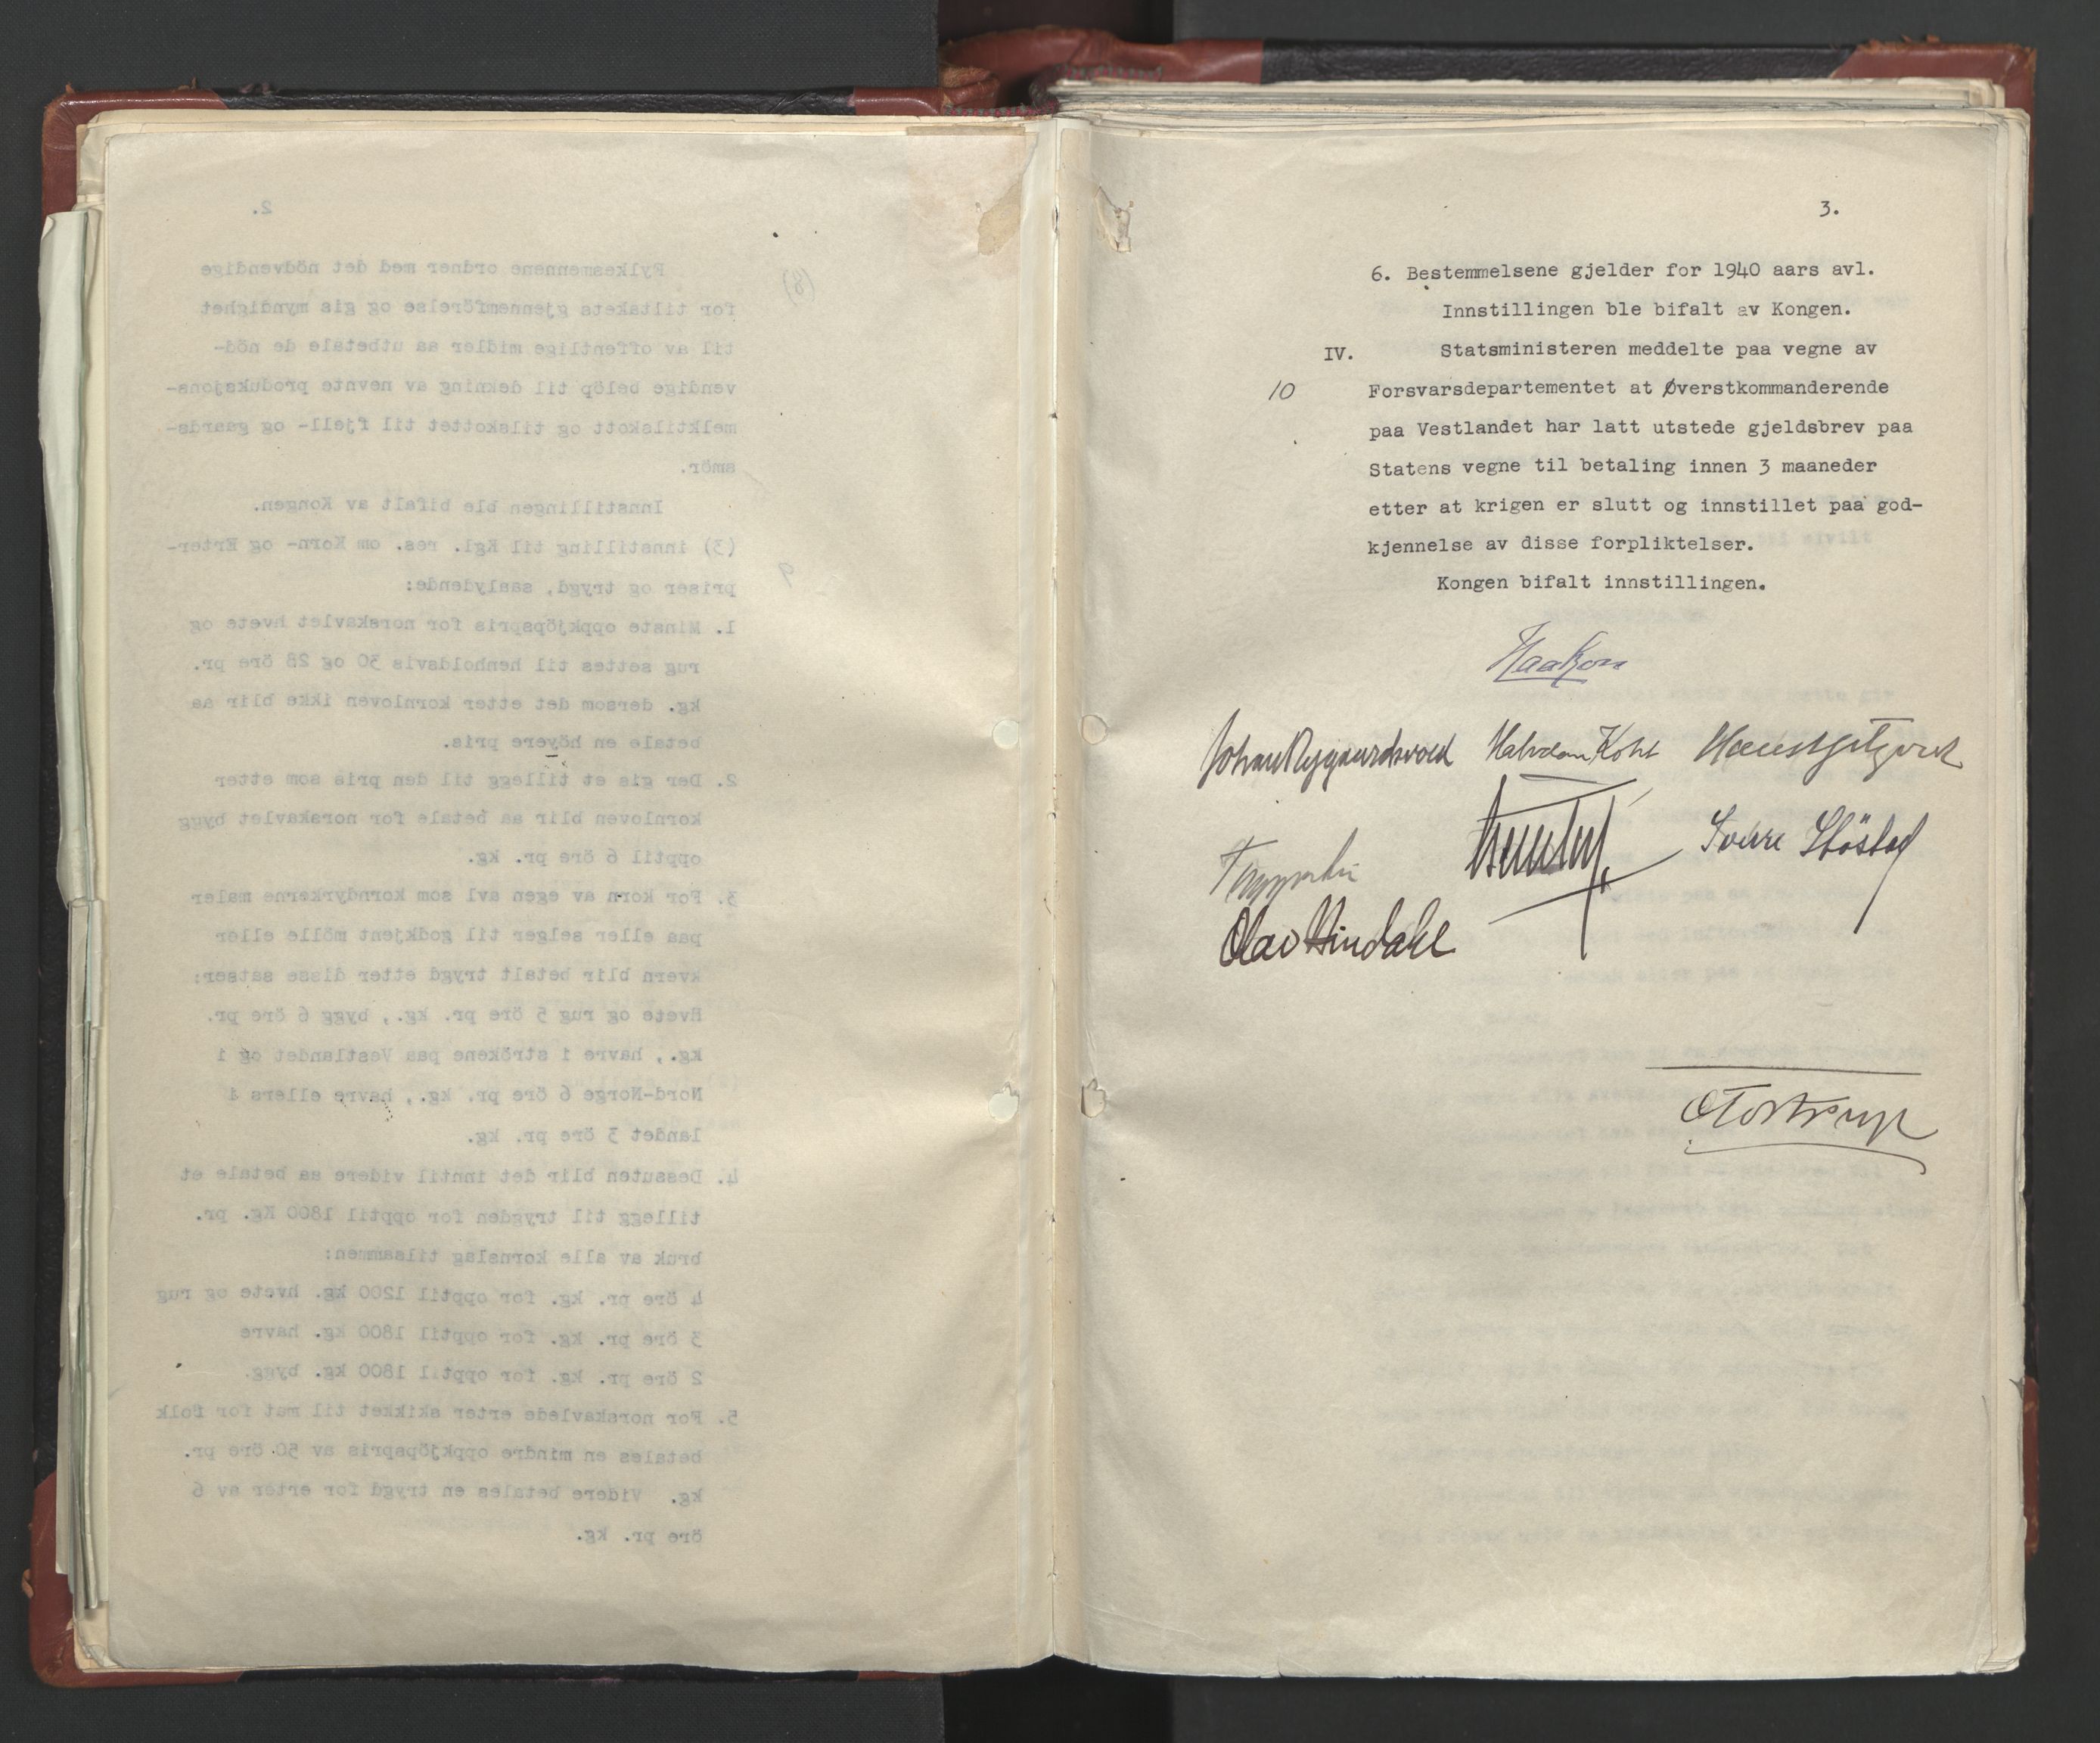 2.
(8)
Fylkesmennene ordner med det nödvendige
for tiltakets gjennemförelse og gis myndighet
til av offentlige midler aa utbetale de nöd-
vendige belöp til dekning av nevnte produksjons-
melktilskott og tilskottet til fjell- og gaards-
smör.
Innstillingen ble bifalt av Kongen.
(3) innstilling til Kgl. res. om Korn- og Erter-
9
priser og trygd, saalydende:
1. Minste oppkjöpspris for norskavlet hvete og
rug settes til henholdsvis 30 og 28 öre pr.
kg. dersom det etter kornloven ikke blir aa
betale en höyere pris.
2. Der gis et tillegg til den pris som etter
kornloven blir aa betale for norskavlet bygg
opptil 6 öre pr. kg.
3. For korn av egen avl som korndyrkerne maler
paa eller selger til godkjent mölle eller
kvern blir betalt trygd etter disse satser:
Hvete og rug 5 öre pr. kg., bygg 6 öre pr.
kg., havre i strökene paa Vestlandet og i
Nord-Norge 6 öre pr. kg., havre ellers i
landet 3 öre pr. kg.
4. Dessuten blir det inntil videre aa betale et
tillegg til trygden for opptil 1800 Kg. pr.
bruk av alle kornslag tilsammen:
4 öre pr. kg. for opptil 1200 kg. hvete og rug
3 öre pr. kg. for opptil 1800 kg. havre
2 öre pr. kg. for opptil 1800 kg. bygg.
5. For norskavlede erter skikket til mat for folk
betales en mindre oppkjöpspris av 50 öre pr.
kg. Videre betales en trygd for erter av 6
öre pr. kg.
3.
6. Bestemmelsene gjelder for 1940 aars avl.
Innstillingen ble bifalt av Kongen.
IV. Statsministeren meddelte paa vegne av
10 Forsvarsdepartementet at Øverstkommanderende
paa Vestlandet har latt utstede gjeldsbrev paa
Statens vegne til betaling innen 3 maaneder
etter at krigen er slutt og innstillet paa god-
kjennelse av disse forpliktelser.
Kongen bifalt innstillingen.
Haakon
Johan Nygaardsvold Halvdan Koht
Sverre Støstad
Olav Hindahl